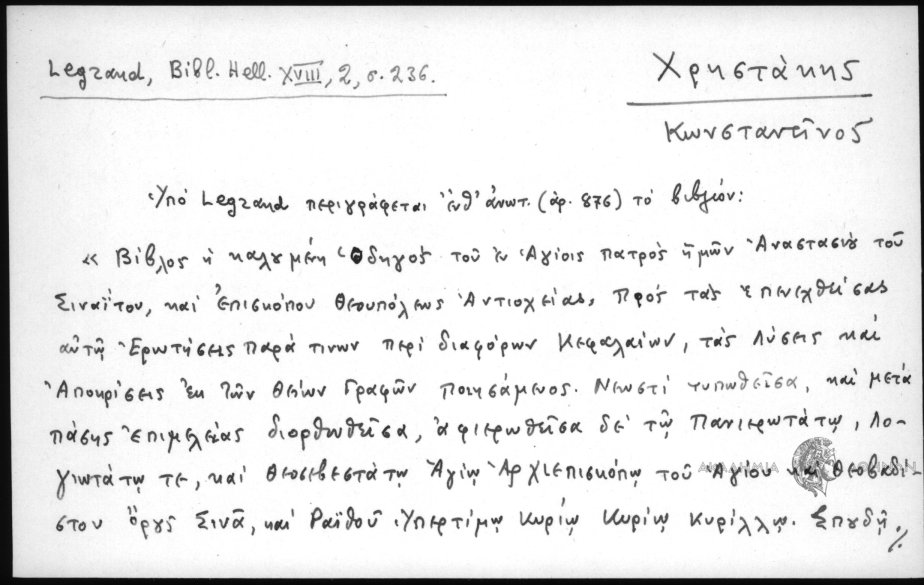 Legrand, Bibl. Hell. XVIII, 2, σ. 236.
Χρηστάκης
Κωνσταντῖνος
Ὑπὸ Legrand περιγράφεται ἐνθ' ἀνωτ. (ἀρ. 876) τὸ βιβλίον:
« Βίβλος ἡ καλουμένη Ὁδηγὸς τοῦ ἐν Ἁγίοις πατρὸς ἡμῶν Ἀναστασίου τοῦ
Σιναΐτου, καὶ Ἐπισκόπου Θεουπόλεως Ἀντιοχείας, Πρὸς τὰς ἐπενεχθείσας
αὐτῷ Ἐρωτήσεις παρά τινων περὶ διαφόρων Κεφαλαίων, τὰς λύσεις καὶ
Ἀποκρίσεις ἐκ τῶν θείων Γραφῶν ποιησάμενος. Νεωστὶ τυπωθεῖσα, καὶ μετὰ
πάσης Ἐπιμελείας διορθωθεῖσα, ἀφιερωθεῖσα δὲ τῷ Πανιερωτάτῳ, Λο-
γιωτάτῳ τε, καὶ θεοσεβεστάτῳ Ἁγίῳ Ἀρχιεπισκόπῳ τοῦ Ἁγίου καὶ Θεοβαδί-
στου Ὄρους Σινᾶ, καὶ Ραϊθοῦ Ὑπερτίμῳ Κυρίῳ Κυρίῳ Κυρίλλῳ. Σπουδῇ
./.
ΑΚΑΔΗΜΙΑ ΑΘΗΝΩΝ